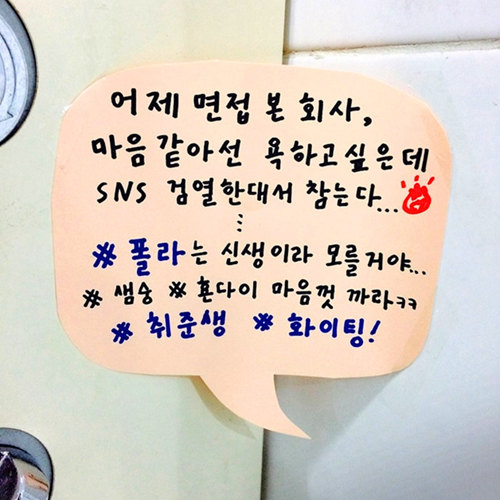 어제 면접 본 회사,
마음 같아선 욕하고싶은데
SNS 검열한대서 참는다...
⋮
#폴라는 신생이라 모를거야...
#샘숭 #횬다이 마음껏 까라ㅋㅋ
#취준생 #화이팅!